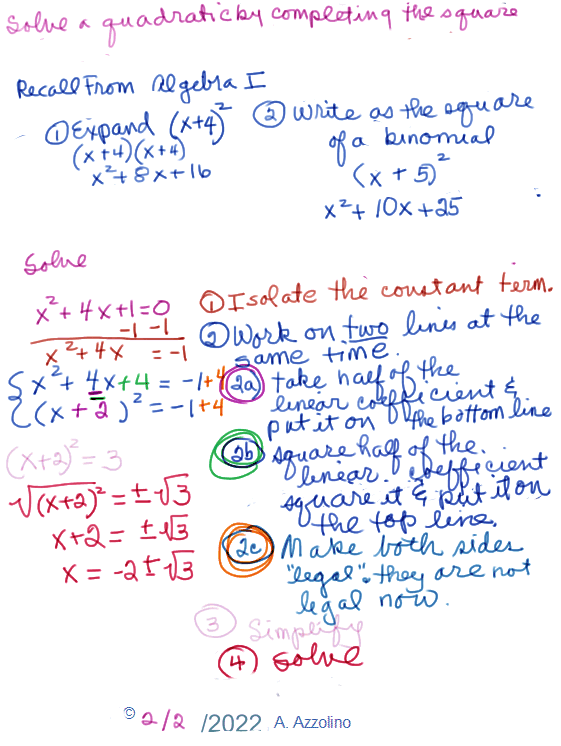 Solve a quadratic by completing the square
Recall From Algebra I
① Expand (x+4)²
(x+4)(x+4)
x²+8x+16
② Write as the square
of a binomial
(x+5)²
x²+10x+25
Solve
x²+4x+1=0
-1 -1
x²+4x = -1
x²+4x+4 = -1+4
(x+2)² = -1+4
(x+2)² = 3
√(x+2)² = ±√3
x+2 = ±√3
x = -2±√3
① Isolate the constant term.
② Work on two lines at the
same time.
2a take half of the
linear coefficient &
put it on the bottom line
2b square half of the
linear. coefficient
square it & put it on
the top line.
2c Make both sides
"legal". they are not
legal now.
③ Simplify
④ Solve
© 2/2 /2022 A. Azzolino